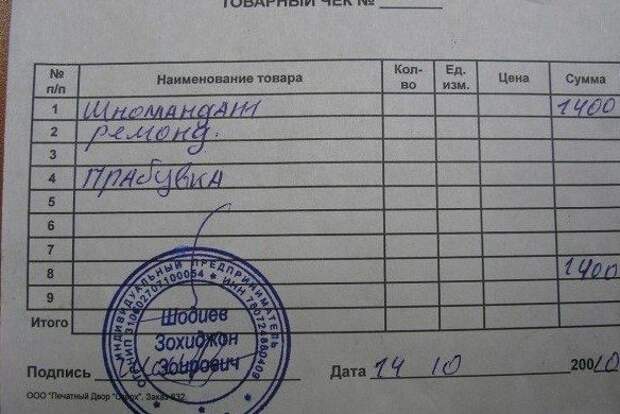 ТОВАРНЫЙ ЧЕК №
№ п/п Наименование товара Кол-во Ед. изм. Цена Сумма
1 Шномандаж 1400
2 ремонд.
3
4 Прабувка
5
6
7
8 1400
9
Итого
ИНДИВИДУАЛЬНЫЙ ПРЕДПРИНИМАТЕЛЬ
ИНН 780724860409
Шодиев
Зохиджон
Зоирович
Подпись Дата 14 10 20010
ООО "Печатный Двор Заказ 832.